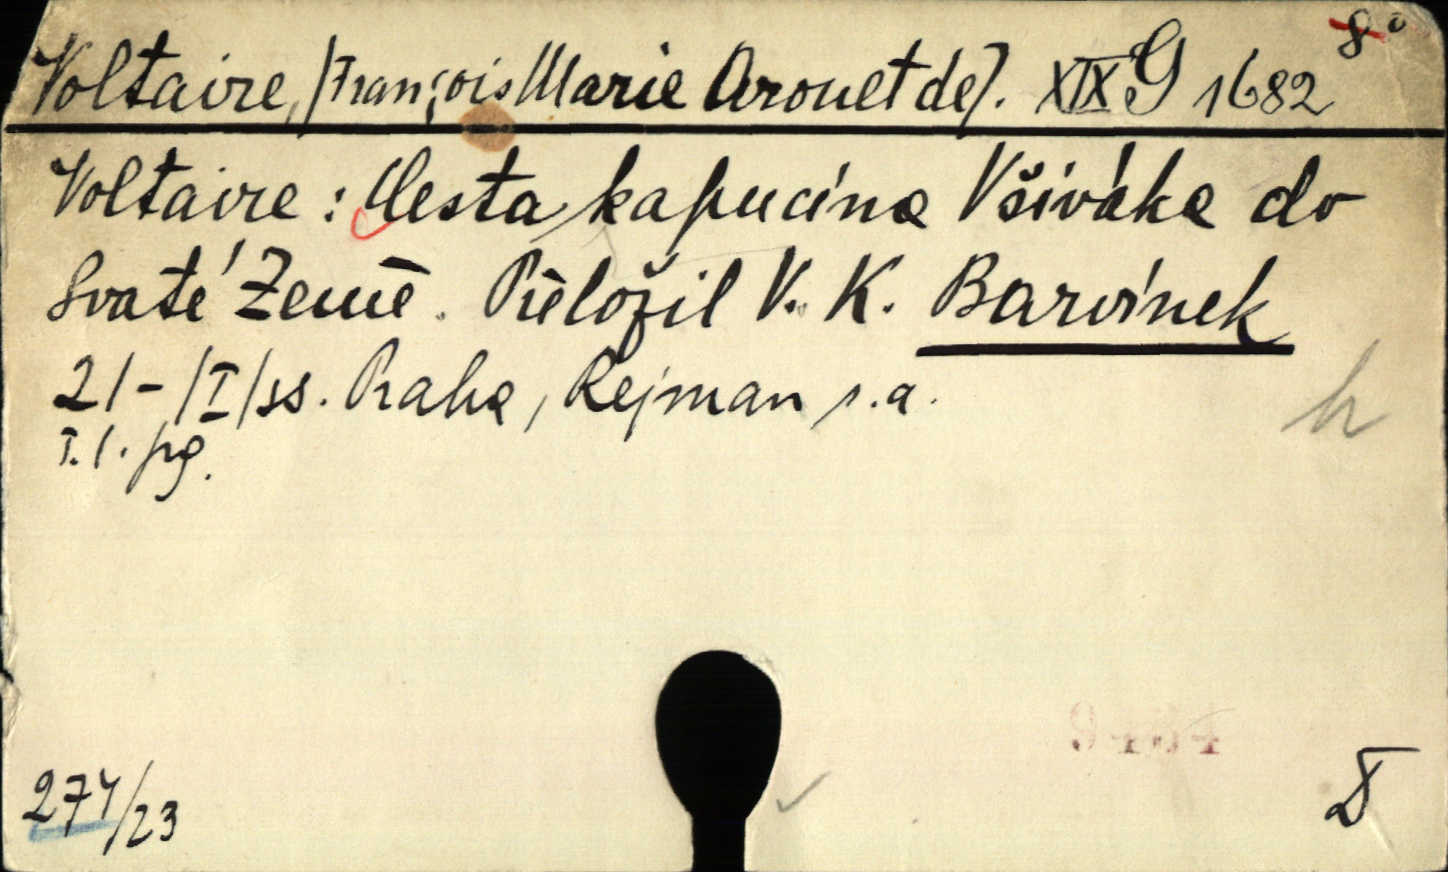 Voltaire, /François Marie Arouet de/. XIX G 1682 8°
Voltaire: Cesta kapucína Všiváka do
Svaté Země. Přeložil V. K. Barvínek
21 - /I/ ss. Praha, Rejman s.a.
I. l. pg.
274/23